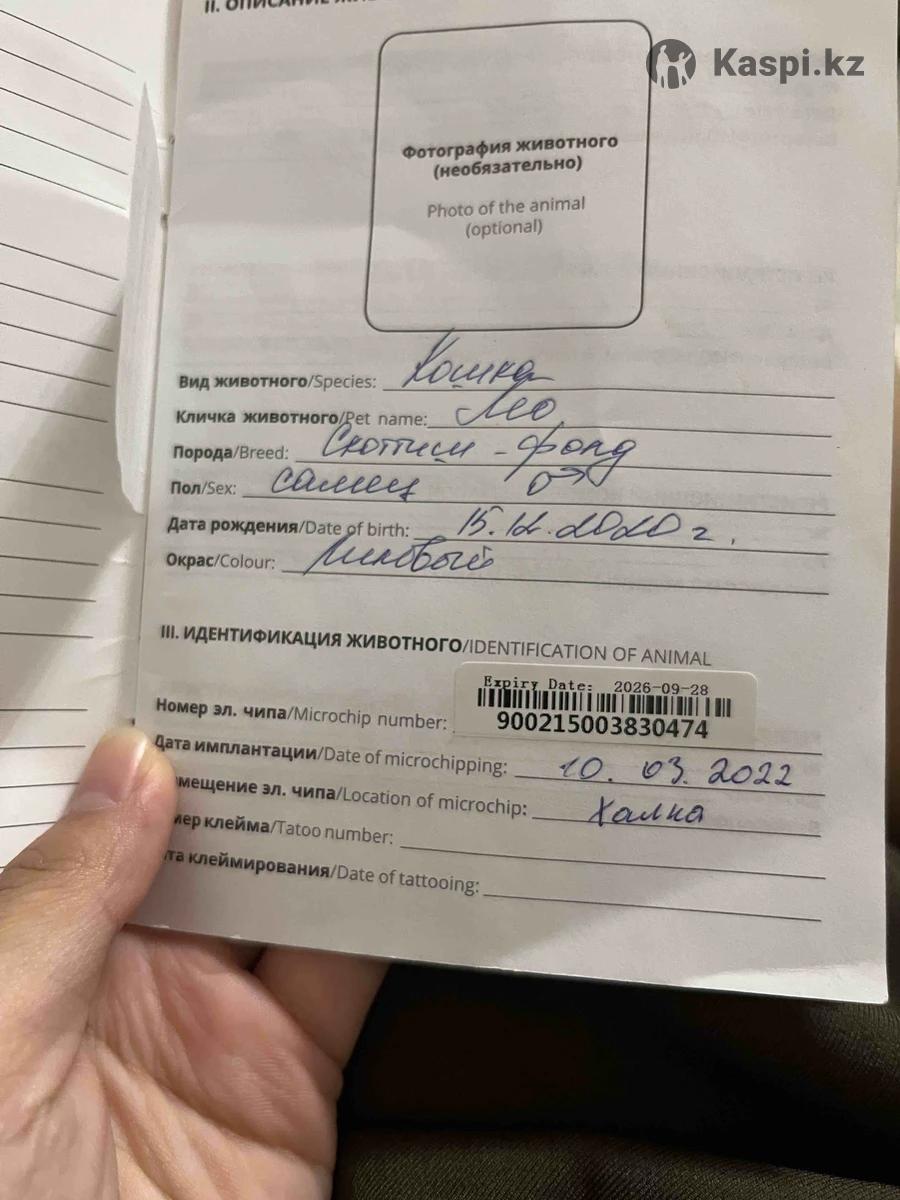 II. ОПИСАНИЕ
Kaspi.kz
Фотография животного
(необязательно)
Photo of the animal
(optional)
Вид животного/Species: Кошка
Кличка животного/Pet name: Лео
Порода/Breed: Скоттиш - фолд
Пол/Sex: самец ♂
Дата рождения/Date of birth: 15.12.2020 г.
Окрас/Colour: Лиловый
III. ИДЕНТИФИКАЦИЯ ЖИВОТНОГО/IDENTIFICATION OF ANIMAL
Expiry Date: 2026-09-28
Номер эл. чипа/Microchip number: 900215003830474
Дата имплантации/Date of microchipping: 10. 03. 2022
мещение эл. чипа/Location of microchip: Холка
мер клейма/Tatoo number:
та клеймирования/Date of tattooing: